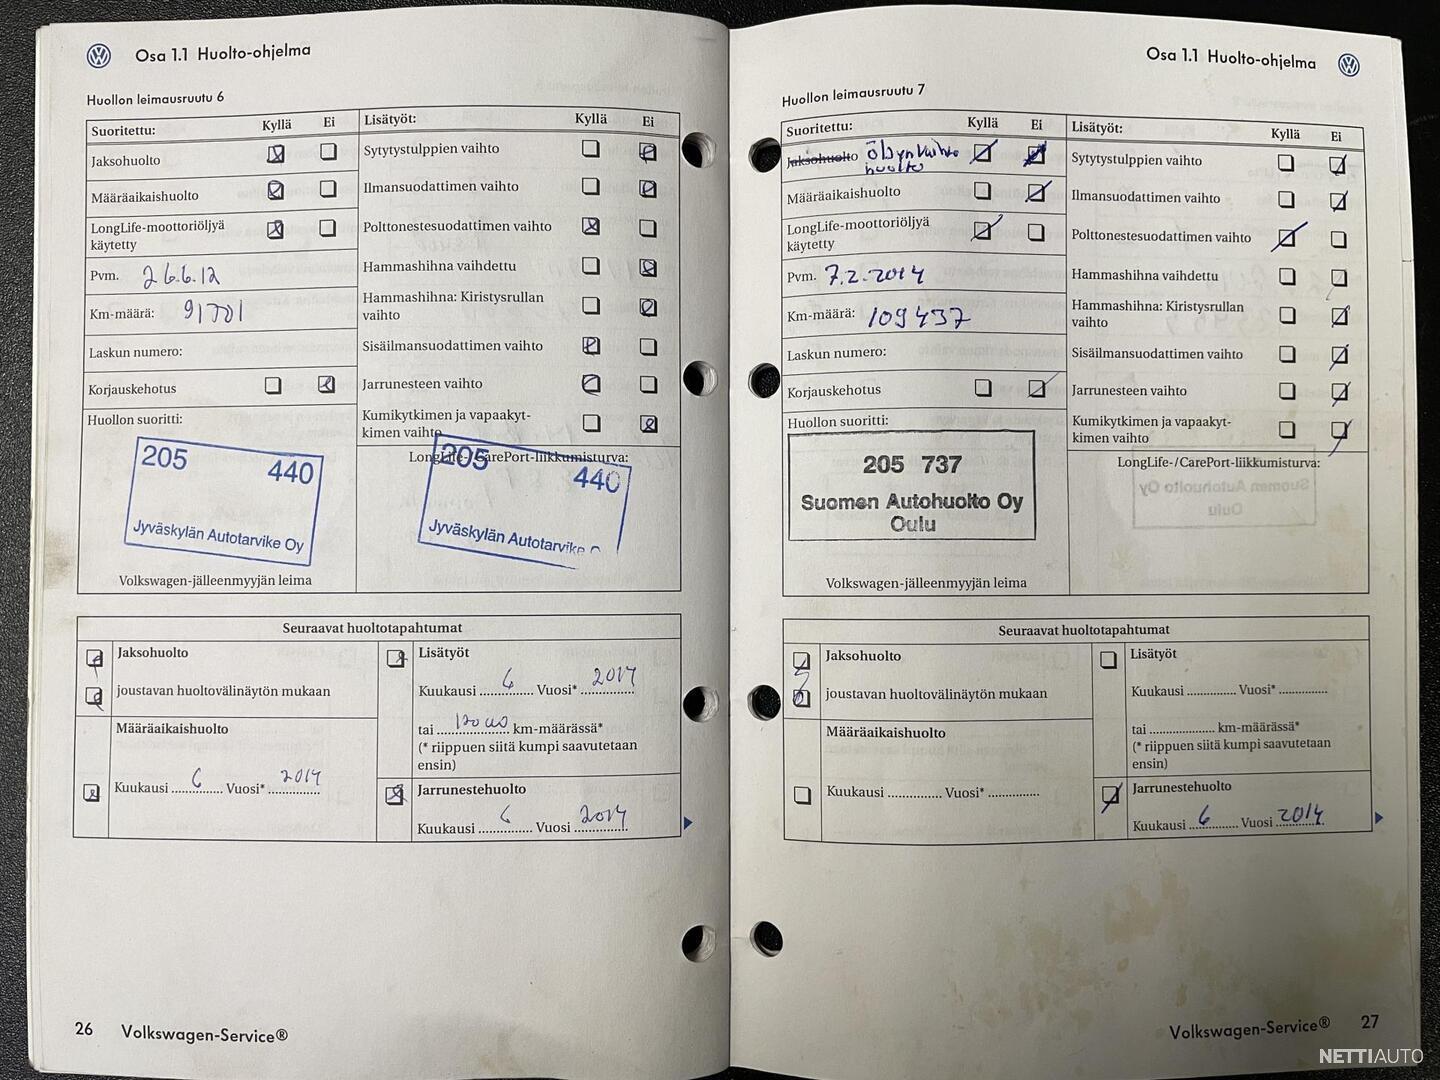 Osa 1.1 Huolto-ohjelma
Huollon leimausruutu 6
Suoritettu: Kyllä Ei
Jaksohuolto
Määräaikaishuolto
LongLife-moottoriöljyä
käytetty
Pvm. 26.6.12
Km-määrä:
Laskun numero:
Korjauskehotus
Huollon suoritti:
205 440
Jyväskylän Autotarvike Oy
Volkswagen-jälleenmyyjän leima
Lisätyöt: Kyllä Ei
Sytytystulppien vaihto
Ilmansuodattimen vaihto
Polttonestesuodattimen vaihto
Hammashihna vaihdettu
Hammashihna: Kiristysrullan
vaihto
Sisäilmansuodattimen vaihto
Jarrunesteen vaihto
Kumikytkimen ja vapaakyt-
kimen vaihto
LongLife-/CarePort-liikkumisturva:
205 440
Jyväskylän Autotarvike
Seuraavat huoltotapahtumat
Jaksohuolto
joustavan huoltovälinäytön mukaan
Määräaikaishuolto
Kuukausi 6 Vuosi* 2014
Lisätyöt
Kuukausi 6 Vuosi* 2014
tai km-määrässä*
(* riippuen siitä kumpi saavutetaan
ensin)
Jarrunestehuolto
Kuukausi 6 Vuosi 2014
26 Volkswagen-Service®
Osa 1.1 Huolto-ohjelma
Huollon leimausruutu 7
Suoritettu: Kyllä Ei
Jaksohuolto öljynvaihto
huolto
Määräaikaishuolto
LongLife-moottoriöljyä
käytetty
Pvm. 7.2.2014
Km-määrä: 109437
Laskun numero:
Korjauskehotus
Huollon suoritti:
205 737
Suomen Autohuolto Oy
Oulu
Volkswagen-jälleenmyyjän leima
Lisätyöt: Kyllä Ei
Sytytystulppien vaihto
Ilmansuodattimen vaihto
Polttonestesuodattimen vaihto
Hammashihna vaihdettu
Hammashihna: Kiristysrullan
vaihto
Sisäilmansuodattimen vaihto
Jarrunesteen vaihto
Kumikytkimen ja vapaakyt-
kimen vaihto
LongLife-/CarePort-liikkumisturva:
Seuraavat huoltotapahtumat
Jaksohuolto
joustavan huoltovälinäytön mukaan
Määräaikaishuolto
Kuukausi Vuosi*
Lisätyöt
Kuukausi Vuosi*
tai km-määrässä*
(* riippuen siitä kumpi saavutetaan
ensin)
Jarrunestehuolto
Kuukausi 6 Vuosi 2014
Volkswagen-Service® 27
NETTIAUTO